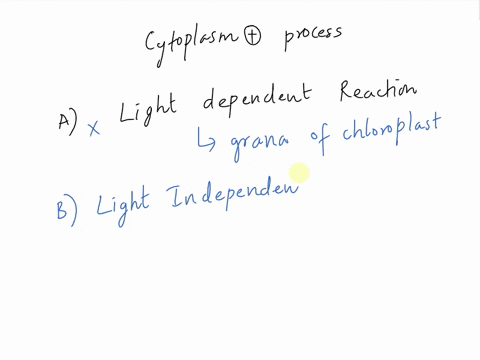 Cytoplasm ⊕ process
A) x Light dependent Reaction
↳ grana of chloroplast
B) Light Independen